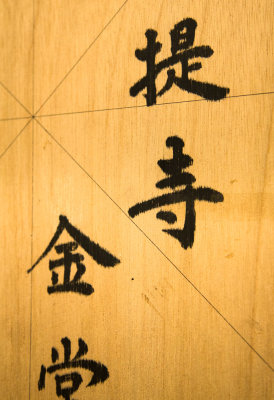 提寺
金堂